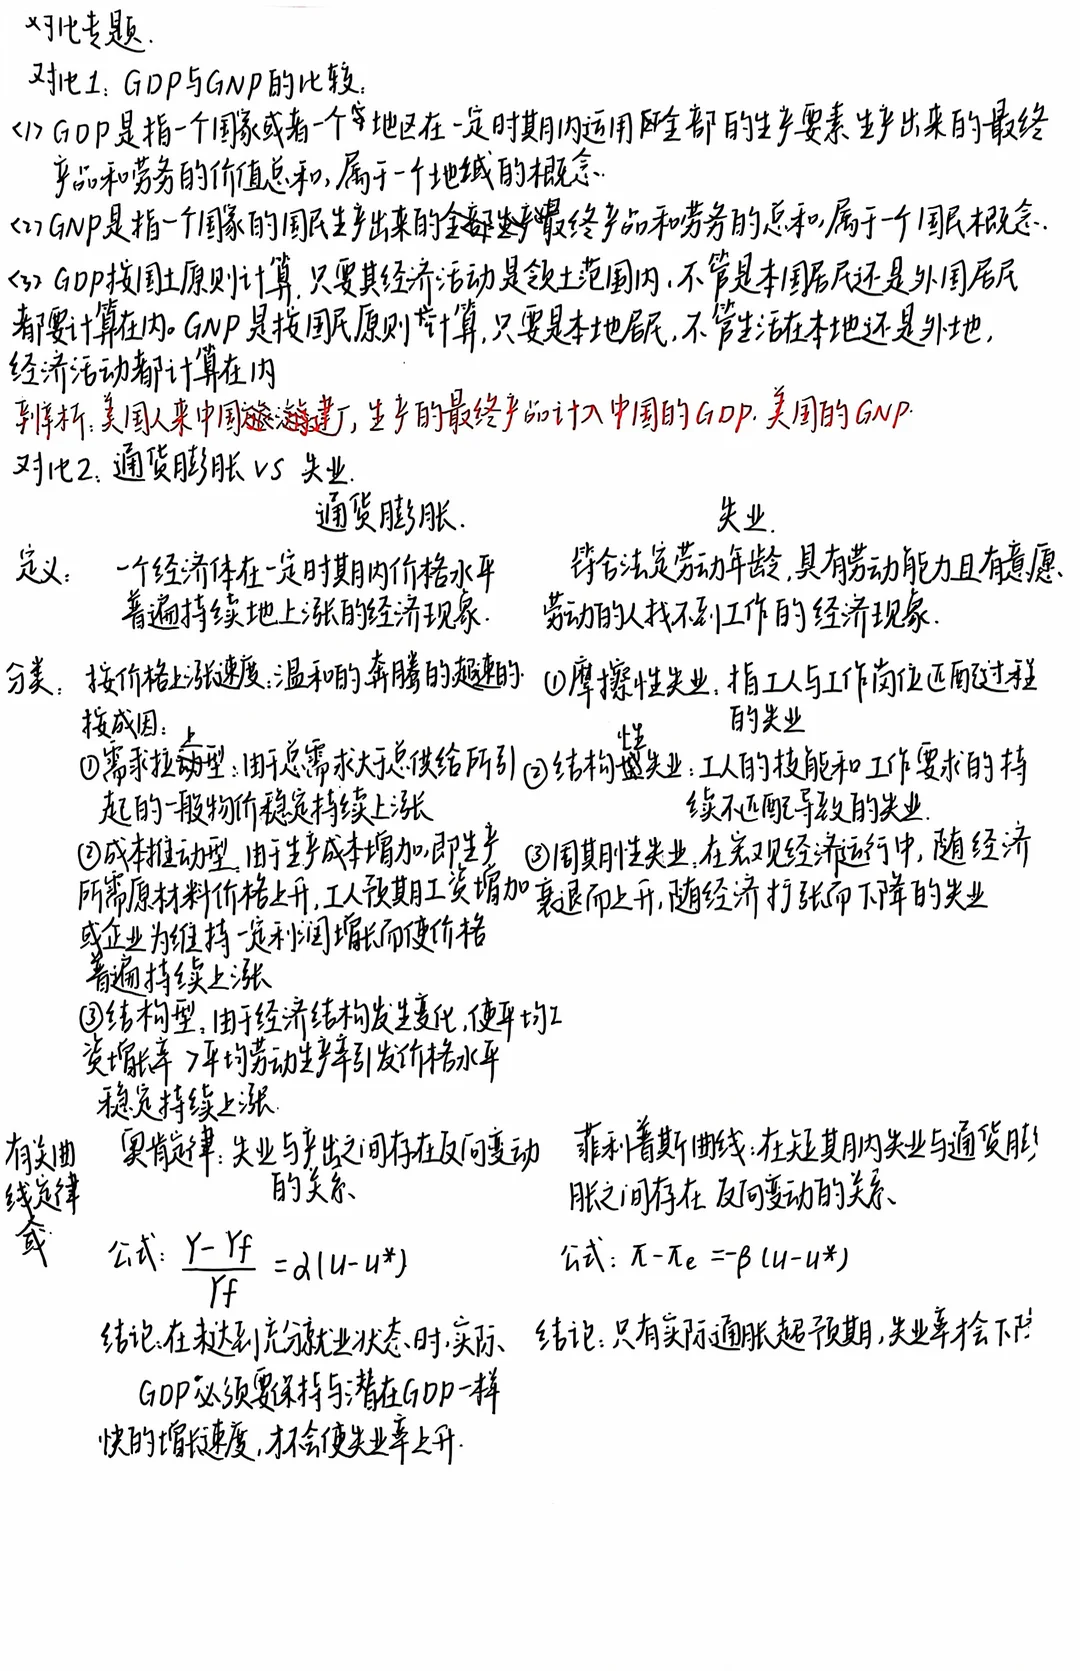 对比专题.
对比1: GDP与GNP的比较:
<1> GDP是指一个国家或者一个地区在一定时期内运用全部的生产要素生产出来的最终
产品和劳务的价值总和,属于一个地域的概念.
<2> GNP是指一个国家的国民生产出来的最终产品和劳务的总和,属于一个国民概念.
<3> GDP按国土原则计算,只要其经济活动是领土范围内,不管是本国居民还是外国居民
都要计算在内。GNP是按国民原则计算,只要是本地居民,不管生活在本地还是外地,
经济活动都计算在内
辨析:美国人来中国建厂,生产的最终产品计入中国的GDP.美国的GNP.
对比2:通货膨胀 VS 失业.
通货膨胀. 失业.
定义: 一个经济体在一定时期内价格水平 符合法定劳动年龄,具有劳动能力且有意愿
普遍持续地上涨的经济现象. 劳动的人找不到工作的经济现象.
分类: 按价格上涨速度:温和的 奔腾的 超速的. ①摩擦性失业:指工人与工作岗位匹配过程
按成因: 的失业
①需求拉上型:由于总需求大于总供给所引 ②结构性失业:工人的技能和工作要求的持
起的一般物价稳定持续上涨 续不匹配导致的失业.
②成本推动型:由于生产成本增加,即生产 ③周期性失业:在宏观经济运行中,随经济
所需原材料价格上升,工人预期工资增加 衰退而上升,随经济扩张而下降的失业
或企业为维持一定利润增长而使价格
普遍持续上涨
③结构型:由于经济结构发生变化,使平均工
资增长率>平均劳动生产率引发价格水平
稳定持续上涨.
有关曲 奥肯定律:失业与产出之间存在反向变动 菲利普斯曲线:在短期内失业与通货膨
线定律 的关系 胀之间存在反向变动的关系
或 公式: (Y-Yf)/Yf = α(u-u*) 公式: π-πe =-β(u-u*)
结论:在未达到充分就业状态时,实际 结论:只有实际通胀超预期,失业率才会下降
GDP必须要保持与潜在GDP一样
快的增长速度,才不会使失业率上升.